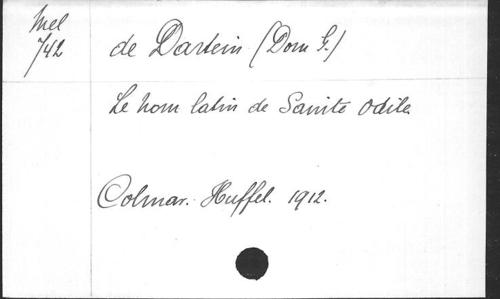 Mel
742
de Dartein (Dom G.)
Le nom latin de Sainte Odile
Colmar. Huffel. 1912.